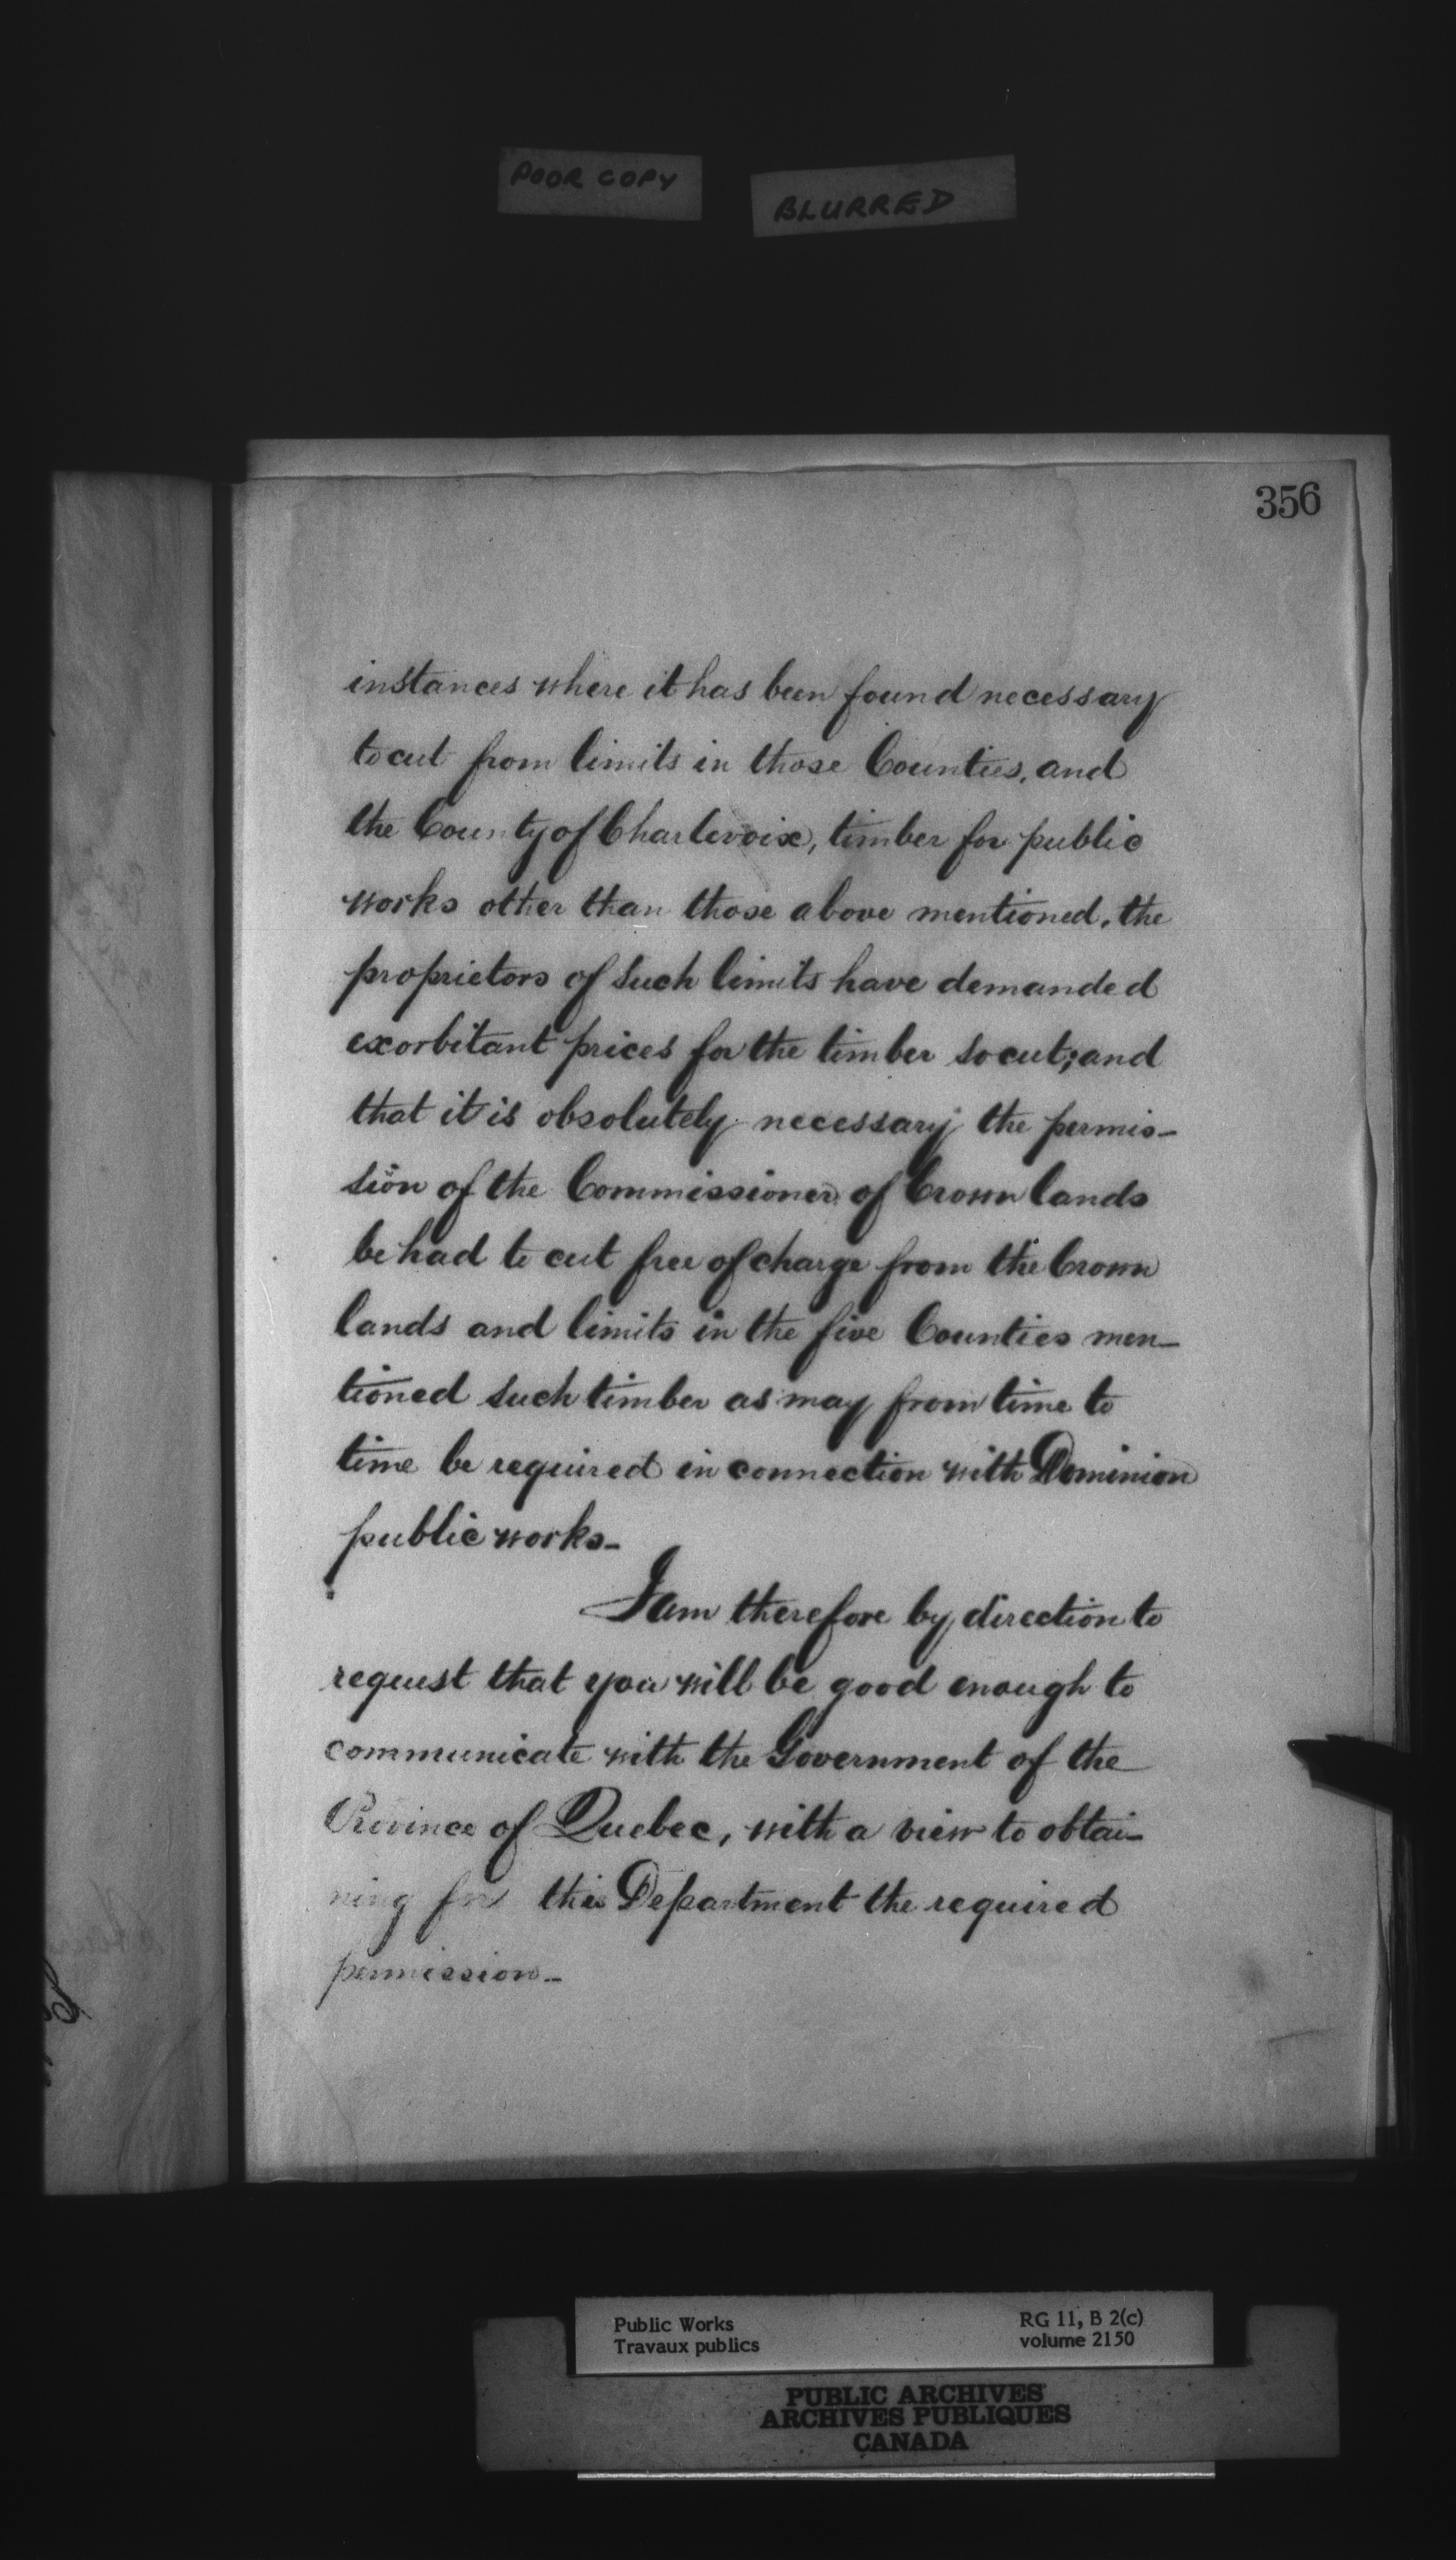 POOR COPY
BLURRED
356
instances where it has been found necessary
to cut from limits in those Counties, and
the County of Charlevoix, timber for public
works other than those above mentioned, the
proprietors of such limits have demanded
exorbitant prices for the timber so cut; and
that it is absolutely necessary the permis-
sion of the Commissioner of Crown lands
be had to cut free of charge from the Crown
lands and limits in the five Counties men-
tioned such timber as may from time to
time be required in connection with Dominion
public works-
I am therefore by direction to
request that you will be good enough to
communicate with the Government of the
Province of Quebec, with a view to obtai-
ning for this Department the required
permission-
Public Works
Travaux publics
RG 11, B 2(c)
volume 2150
PUBLIC ARCHIVES
ARCHIVES PUBLIQUES
CANADA